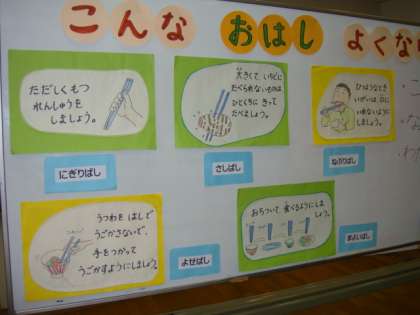 こんな おはし よくない
ただしくもつ
れんしゅうを
しましょう。
にぎりばし
大きくて、いちどに
たべられないものは
ひとくちに きって
たべましょう。
さしばし
ひつようなとき
いがいは、口に
いれないように
しましょう。
ねぶりばし
うつわを はしで
うごかさないで、
手をつかって
うごかすようにしましょう。
よせばし
おちついて、食べるようにしま
しょう。
まよいばし